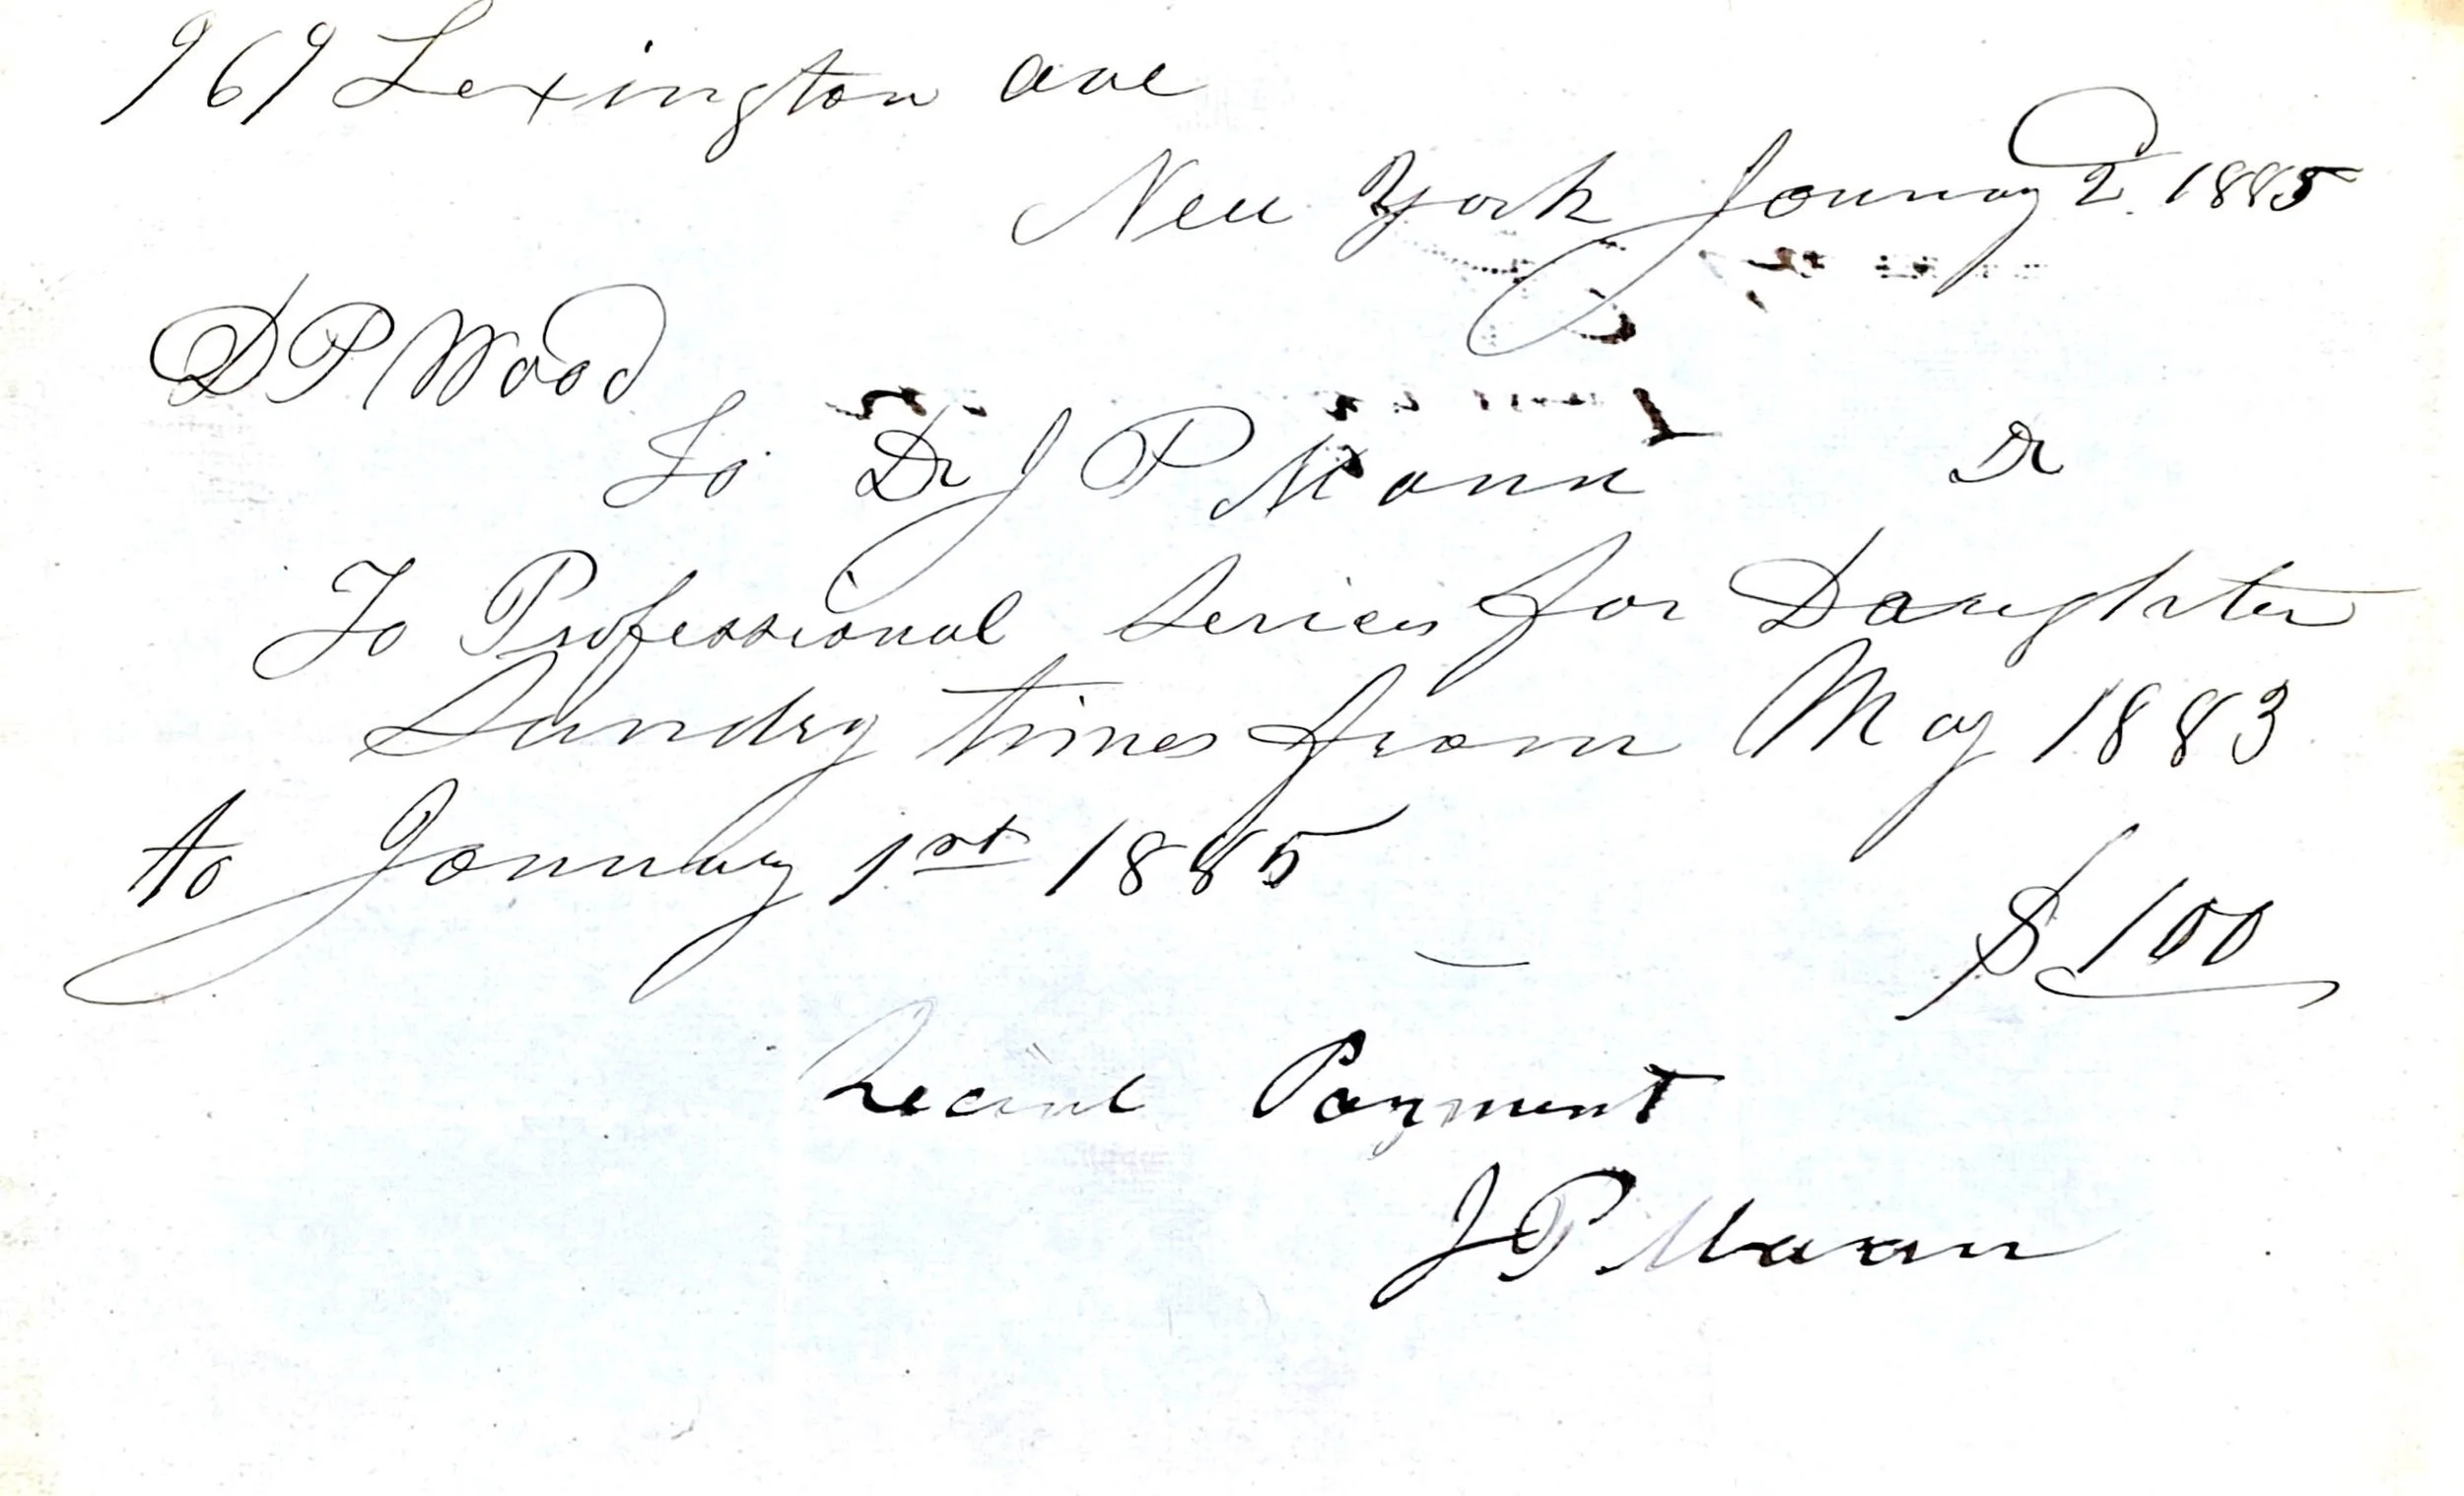 969 Lexington ave
New York January 2 1885
D P Wood
To Dr J P Mann Dr
To Professional Serices for Daughter
Sundry times from May 1883
to January 1st 1885
$100
Recived Payment
J P Mann